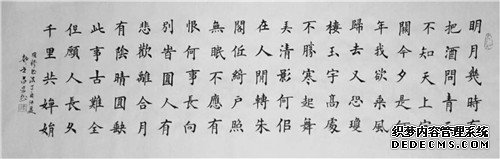 明月幾時有
把酒問青天
不知天上宮
闕今夕是何
年我欲乘風
歸去又恐瓊
樓玉宇高處
不勝寒起舞
弄清影何似
在人間轉朱
閣低綺戶照
無眠不應有
恨何事長向
別時圓人有
悲歡離合月
有陰晴圓缺
此事古難全
但願人長久
千里共嬋娟
织梦内容管理系统
DEDECMS.COM